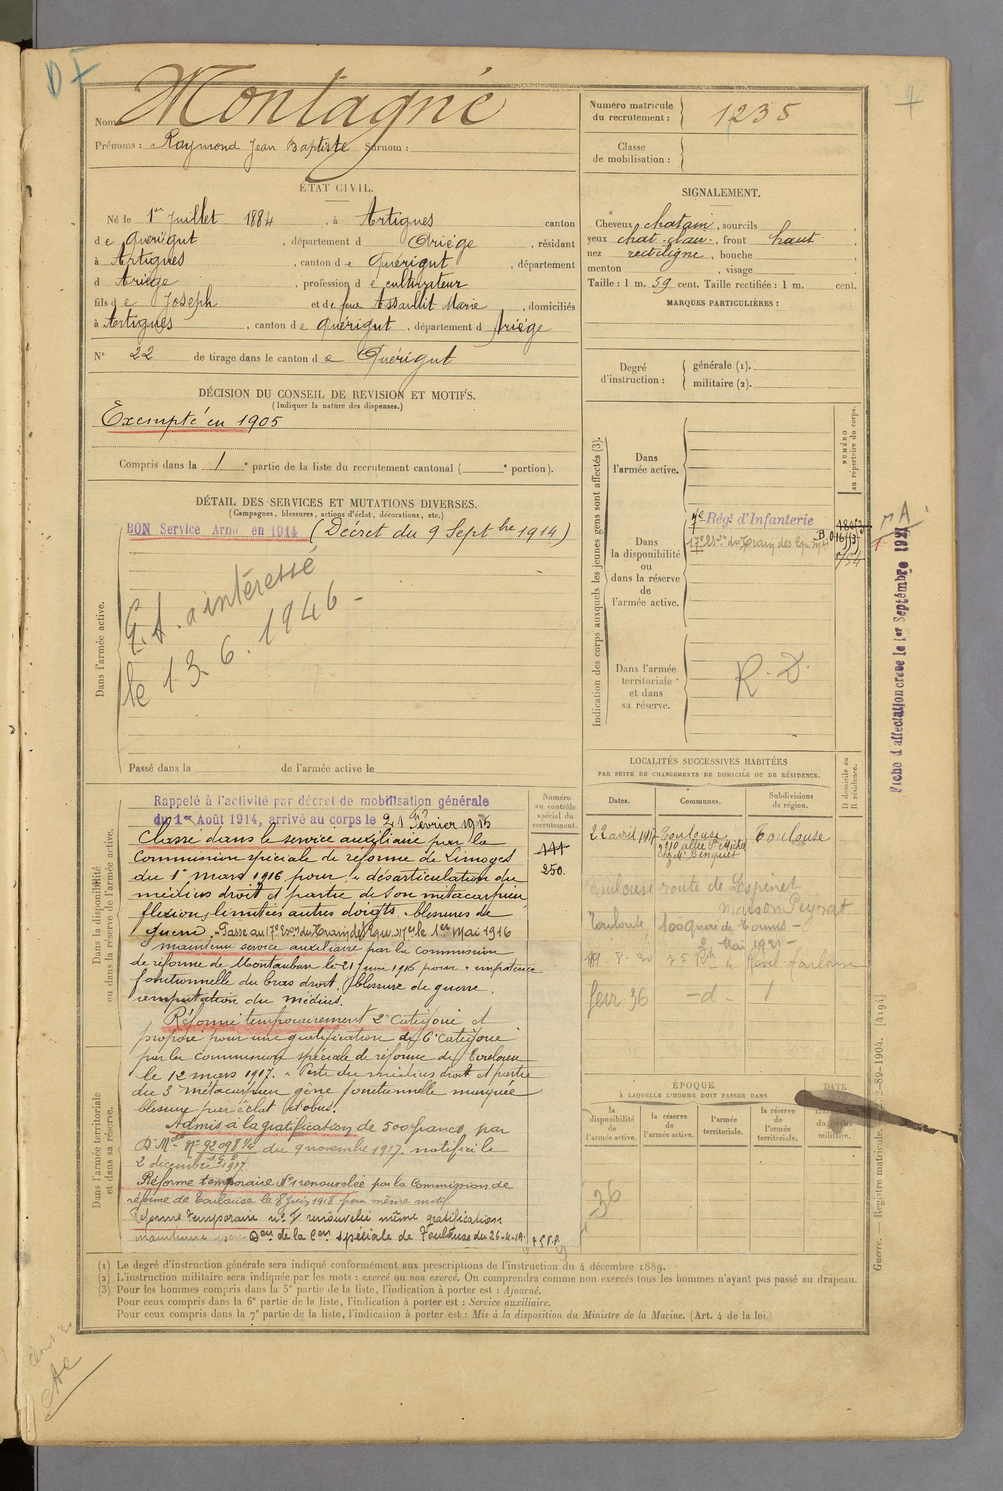 DF
Nom Montagné
Prénoms : Raymond Jean Baptiste Surnom :
ÉTAT CIVIL.
Né le 1er Juillet 1884, à Artigues canton
de Quérigut, département d Ariége, résidant
à Artigues, canton de Quérigut, département
d Ariége, profession de cultivateur
fils de Joseph et de feue Assaillit Marie, domiciliés
à Artigues, canton de Quérigut, département d Ariége
N° 22 de tirage dans le canton de Quérigut
DÉCISION DU CONSEIL DE REVISION ET MOTIFS.
(Indiquer la nature des dispenses.)
Exempté en 1905
Compris dans la 1e partie de la liste du recrutement cantonal ( e portion).
DÉTAIL DES SERVICES ET MUTATIONS DIVERSES.
(Campagnes, blessures, actions d'éclat, décorations, etc.)
BON Service Armé en 1914 (Décret du 9 Septbre 1914)
Dans l'armée active.
a intéressé
le 13. 6. 1946 -
Passé dans la de l'armée active le
Dans la disponibilité
ou dans la réserve de l'armée active.
Rappelé à l'activité par décret de mobilisation générale
du 1er Août 1914, arrivé au corps le 21 Février 1915
Classé dans le service auxiliaire par la
Commission spéciale de réforme de Limoges
du 1er mars 1916 pour « désarticulation du
médius droit et partie de son métacarpien
flexion limitée autres doigts - blessures de
guerre. » Passé au 17e Eson du Train des Equ. Mres le 1er Mai 1916
maintenu service auxiliaire par la commission
de réforme de Montauban le 21 Juin 1916 pour « impotence
fonctionnelle du bras droit, blessure de guerre.
amputation du médius.
Réformé temporairement 2e Catégorie et
proposé pour une gratification de 6e Catégorie
par la commission spéciale de réforme de Toulouse
le 12 mars 1917. « Perte du médius droit et partie
du 3e métacarpien gène fonctionnelle marquée
blessure par éclat d'obus.
Admis à la gratification de 500 francs par
du 9 novembre 1917. notifié le
2 décembre 1917.
Réforme temporaire N°1 renouvelée par la Commission de
réforme de Toulouse le 8 Juin 1918 pour même motif
Réforme temporaire n° 1 renouvelée même gratification
maintenue par Don de la Con spéciale de Toulouse du 26-4-19.
Dans l'armée territoriale
et dans sa réserve.
Numéro
au contrôle
spécial du
recrutement.
444
250
Numéro matricule
du recrutement : 1235
Classe
de mobilisation :
SIGNALEMENT.
Cheveux chatain, sourcils
yeux chat. clair, front haut
nez rectiligne, bouche
menton, visage
Taille : 1 m. 59 cent. Taille rectifiée : 1 m. cent.
MARQUES PARTICULIÈRES :
Degré
d'instruction :
générale (1).
militaire (2).
Indication des corps auxquels les jeunes gens sont affectés (3).
NUMÉRO
au répertoire du corps.
Dans
l'armée active.
Dans
la disponibilité
ou
dans la réserve
de
l'armée active.
7e Régt d'Infanterie
17e Eson du Train des Equ. Mres
Dans l'armée
territoriale
et dans
sa réserve.
R. D.
Fiche d'affectation créée le 1er Septembre 1921
LOCALITÉS SUCCESSIVES HABITÉES
PAR SUITE DE CHANGEMENTS DE DOMICILE OU DE RÉSIDENCE.
D domicile ou
R résidence.
Dates.
Communes.
Subdivisions
de région.
22 avril 1917 Toulouse Toulouse
allée St Michel
Toulouse route de Lespinet
maison Peyrat
Toulouse, 100 quai de Tounis -
2 Mai 1921 -
Revel Toulouse
fevr 36 - d - 1
ÉPOQUE
À LAQUELLE L'HOMME DOIT PASSER DANS
la
disponibilité
de
l'armée active.
la réserve
de
l'armée active.
l'armée
territoriale.
la réserve
de
l'armée
territoriale.
DATE
militaire.
36
Guerre. — Registre matricule. 2-89-1904. [4194]
(1) Le degré d'instruction générale sera indiqué conformément aux prescriptions de l'instruction du 4 décembre 1889.
(2) L'instruction militaire sera indiquée par les mots : exercé ou non exercé. On comprendra comme non exercés tous les hommes n'ayant pas passé au drapeau.
(3) Pour les hommes compris dans la 5e partie de la liste, l'indication à porter est : Ajourné.
Pour ceux compris dans la 6e partie de la liste, l'indication à porter est : Service auxiliaire.
Pour ceux compris dans la 7e partie de la liste, l'indication à porter est : Mis à la disposition du Ministre de la Marine. (Art. 4 de la loi.)